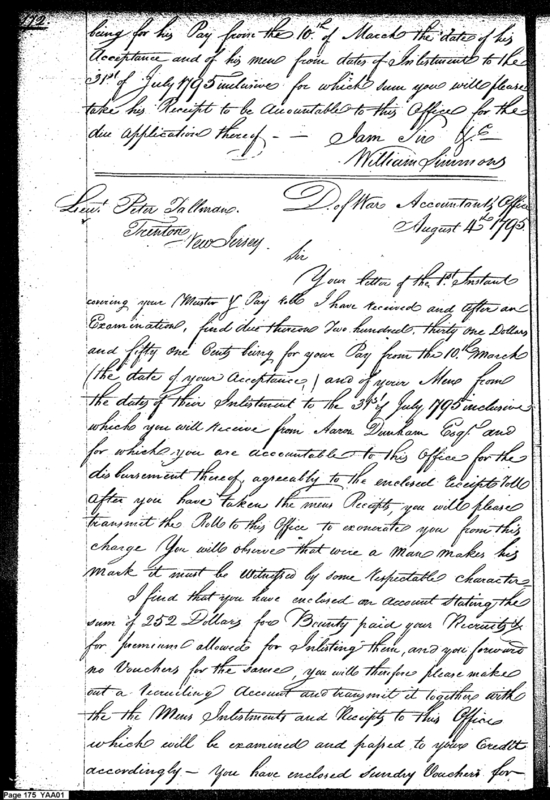 172
being for his Pay from the 10.th of March the date of his
Acceptance and of his men from dates of Inlistment to the
31st of July 1795 inclusive for which sum you will please
take his Receipt to be Accountable to this Office for the
due application thereof — I am Sir &c
William Simmons
Lieut. Peter Tallman.
Trenton
New Jersey.
D of War Accountants Office
August 4th 1795
Sir
Your letter of the 1st Instant
covering your Muster & Pay roll I have received and after an
Examination, find due thereon Two hundred thirty one Dollars
and fifty one Cents being for your Pay from the 10.th March
(the date of your Acceptance,) and of your Men from
the dates of their Inlistment to the 31st of July 1795 inclusive
which you will receive from Aaron Dunham Esqr. and
for which you are accountable to this Office for the
disbursement thereof, agreeably to the enclosed Receipt Roll
After you have taken the mens Receipts, you will please
transmit the Roll to this Office to exonerate you from this
charge You will observe that were a Man makes his
mark it must be Witnessed by some respectable character
I find that you have enclosed an account stating the
sum of 252 Dollars for Bounty paid your Recruits &
for premium allowed for Inlisting them, and you forward
no Vouchers for the same, you will therefore please make
out a recruiting Account and transmit it together with
the the Mens Inlistments and Receipts to this Office
which will be examined and passed to your Credit
accordingly — You have enclosed sundry Vouchers for
Page 175 YAA01